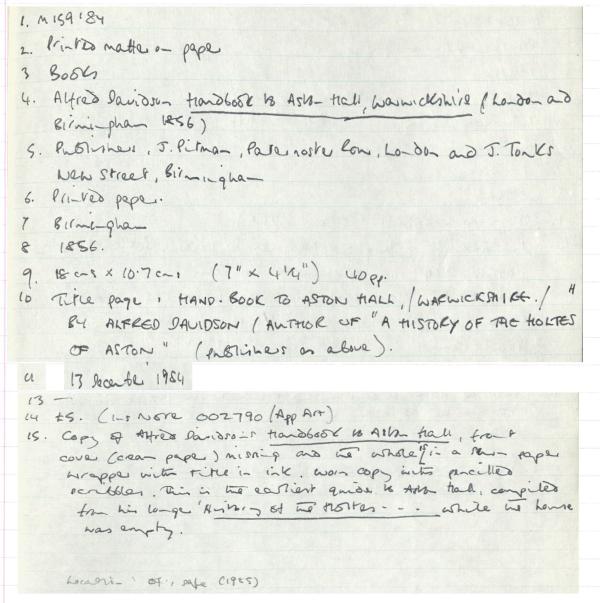 1. M159'84
2. Printed matter on paper
3 Books
4. Alfred Davidson Handbook to Aston Hall, Warwickshire (London and
Birmingham 1856)
5. Publishers, J. Pitman, Paternoster Row, London and J. Tonks
New Street, Birmingham
6. Printed paper.
7 Birmingham
8 1856.
9. 18 cms x 10.7 cms (7" x 4¼") 40pp.
10 Title page: HAND-BOOK TO ASTON HALL, / WARWICKSHIRE. / "
BY ALFRED DAVIDSON (AUTHOR OF "A HISTORY OF THE HOLTES
OF ASTON" (publishers as above).
11 13 December 1984
13 —
14 £5. (Ins Note 002790 (App Art)
15. Copy of Alfred Davidson's Handbook to Aston Hall, front
cover (cream paper) missing and the whole in a paper
wrapper with title in ink. Worn copy with pencilled
scribbles. This is the earliest guide to Aston Hall, compiled
from his longer 'History of the Holtes - - - while the house
was empty.
Location: Of: safe (1985)